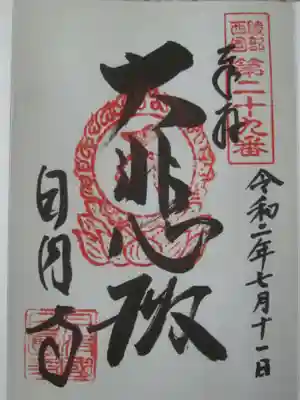 綾部
西国
第二十九番
奉拝
令和二年七月十一日
大悲心殿
日円寺